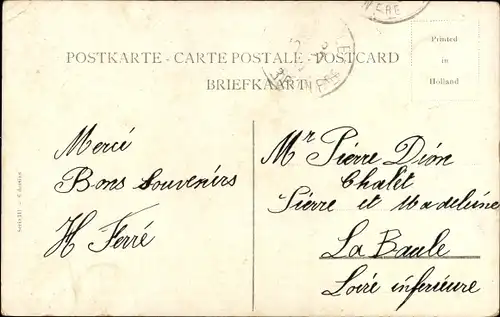 POSTKARTE - CARTE POSTALE - POSTCARD
BRIEFKAART
Printed
in
Holland
Mercé
Bons Souvenirs
H Ferré
Mr Pierre Dion
Chalet
Pierre et Madeleine
La Baule
Loire inférieure